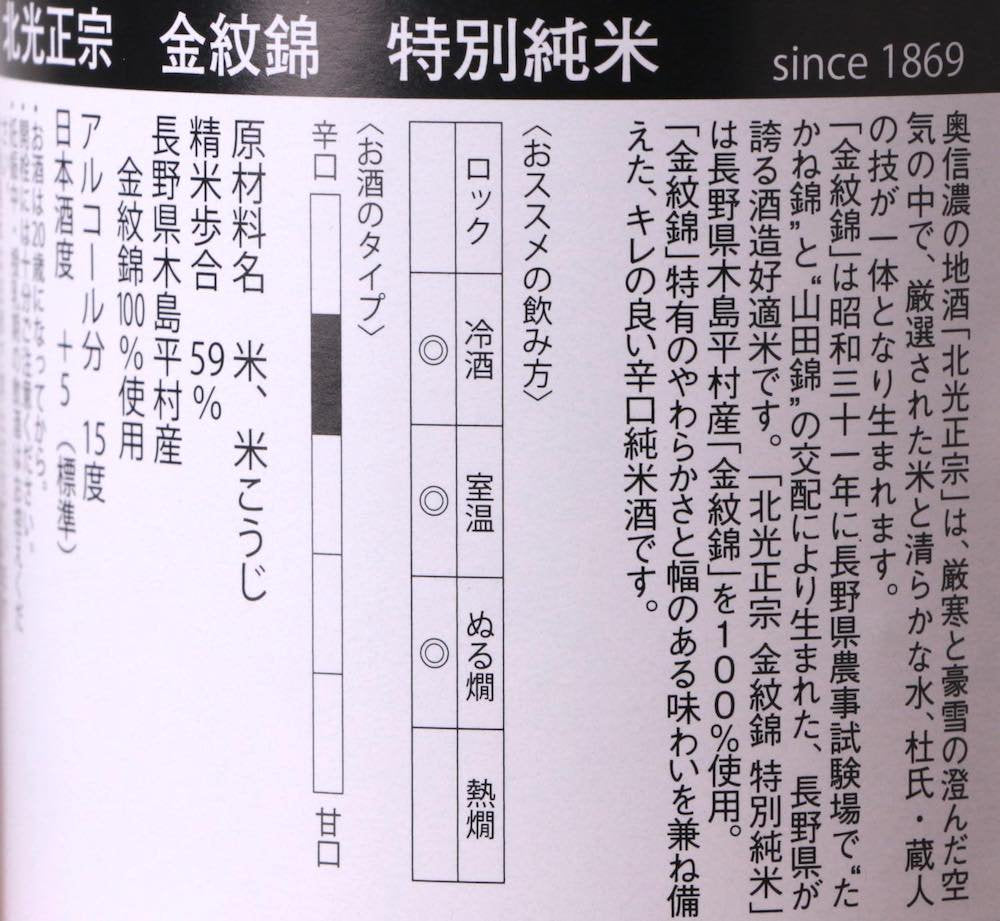 北光正宗　金紋錦　特別純米
since 1869
奥信濃の地酒「北光正宗」は、厳寒と豪雪の澄んだ空
気の中で、厳選された米と清らかな水、杜氏・蔵人
の技が一体となり生まれます。
「金紋錦」は昭和三十一年に長野県農事試験場で“た
かね錦”と“山田錦”の交配により生まれた、長野県が
誇る酒造好適米です。「北光正宗 金紋錦 特別純米」
は長野県木島平村産「金紋錦」を１００％使用。
「金紋錦」特有のやわらかさと幅のある味わいを兼ね備
えた、キレの良い辛口純米酒です。
〈おススメの飲み方〉
ロック
冷酒 ◎
室温 ◎
ぬる燗 ◎
熱燗
〈お酒のタイプ〉
辛口
甘口
原材料名　米、米こうじ
精米歩合　59％
長野県木島平村産
金紋錦100％使用
アルコール分　15度
日本酒度　＋5（標準）
・お酒は20歳になってから。
・開栓には十分ご注意ください。